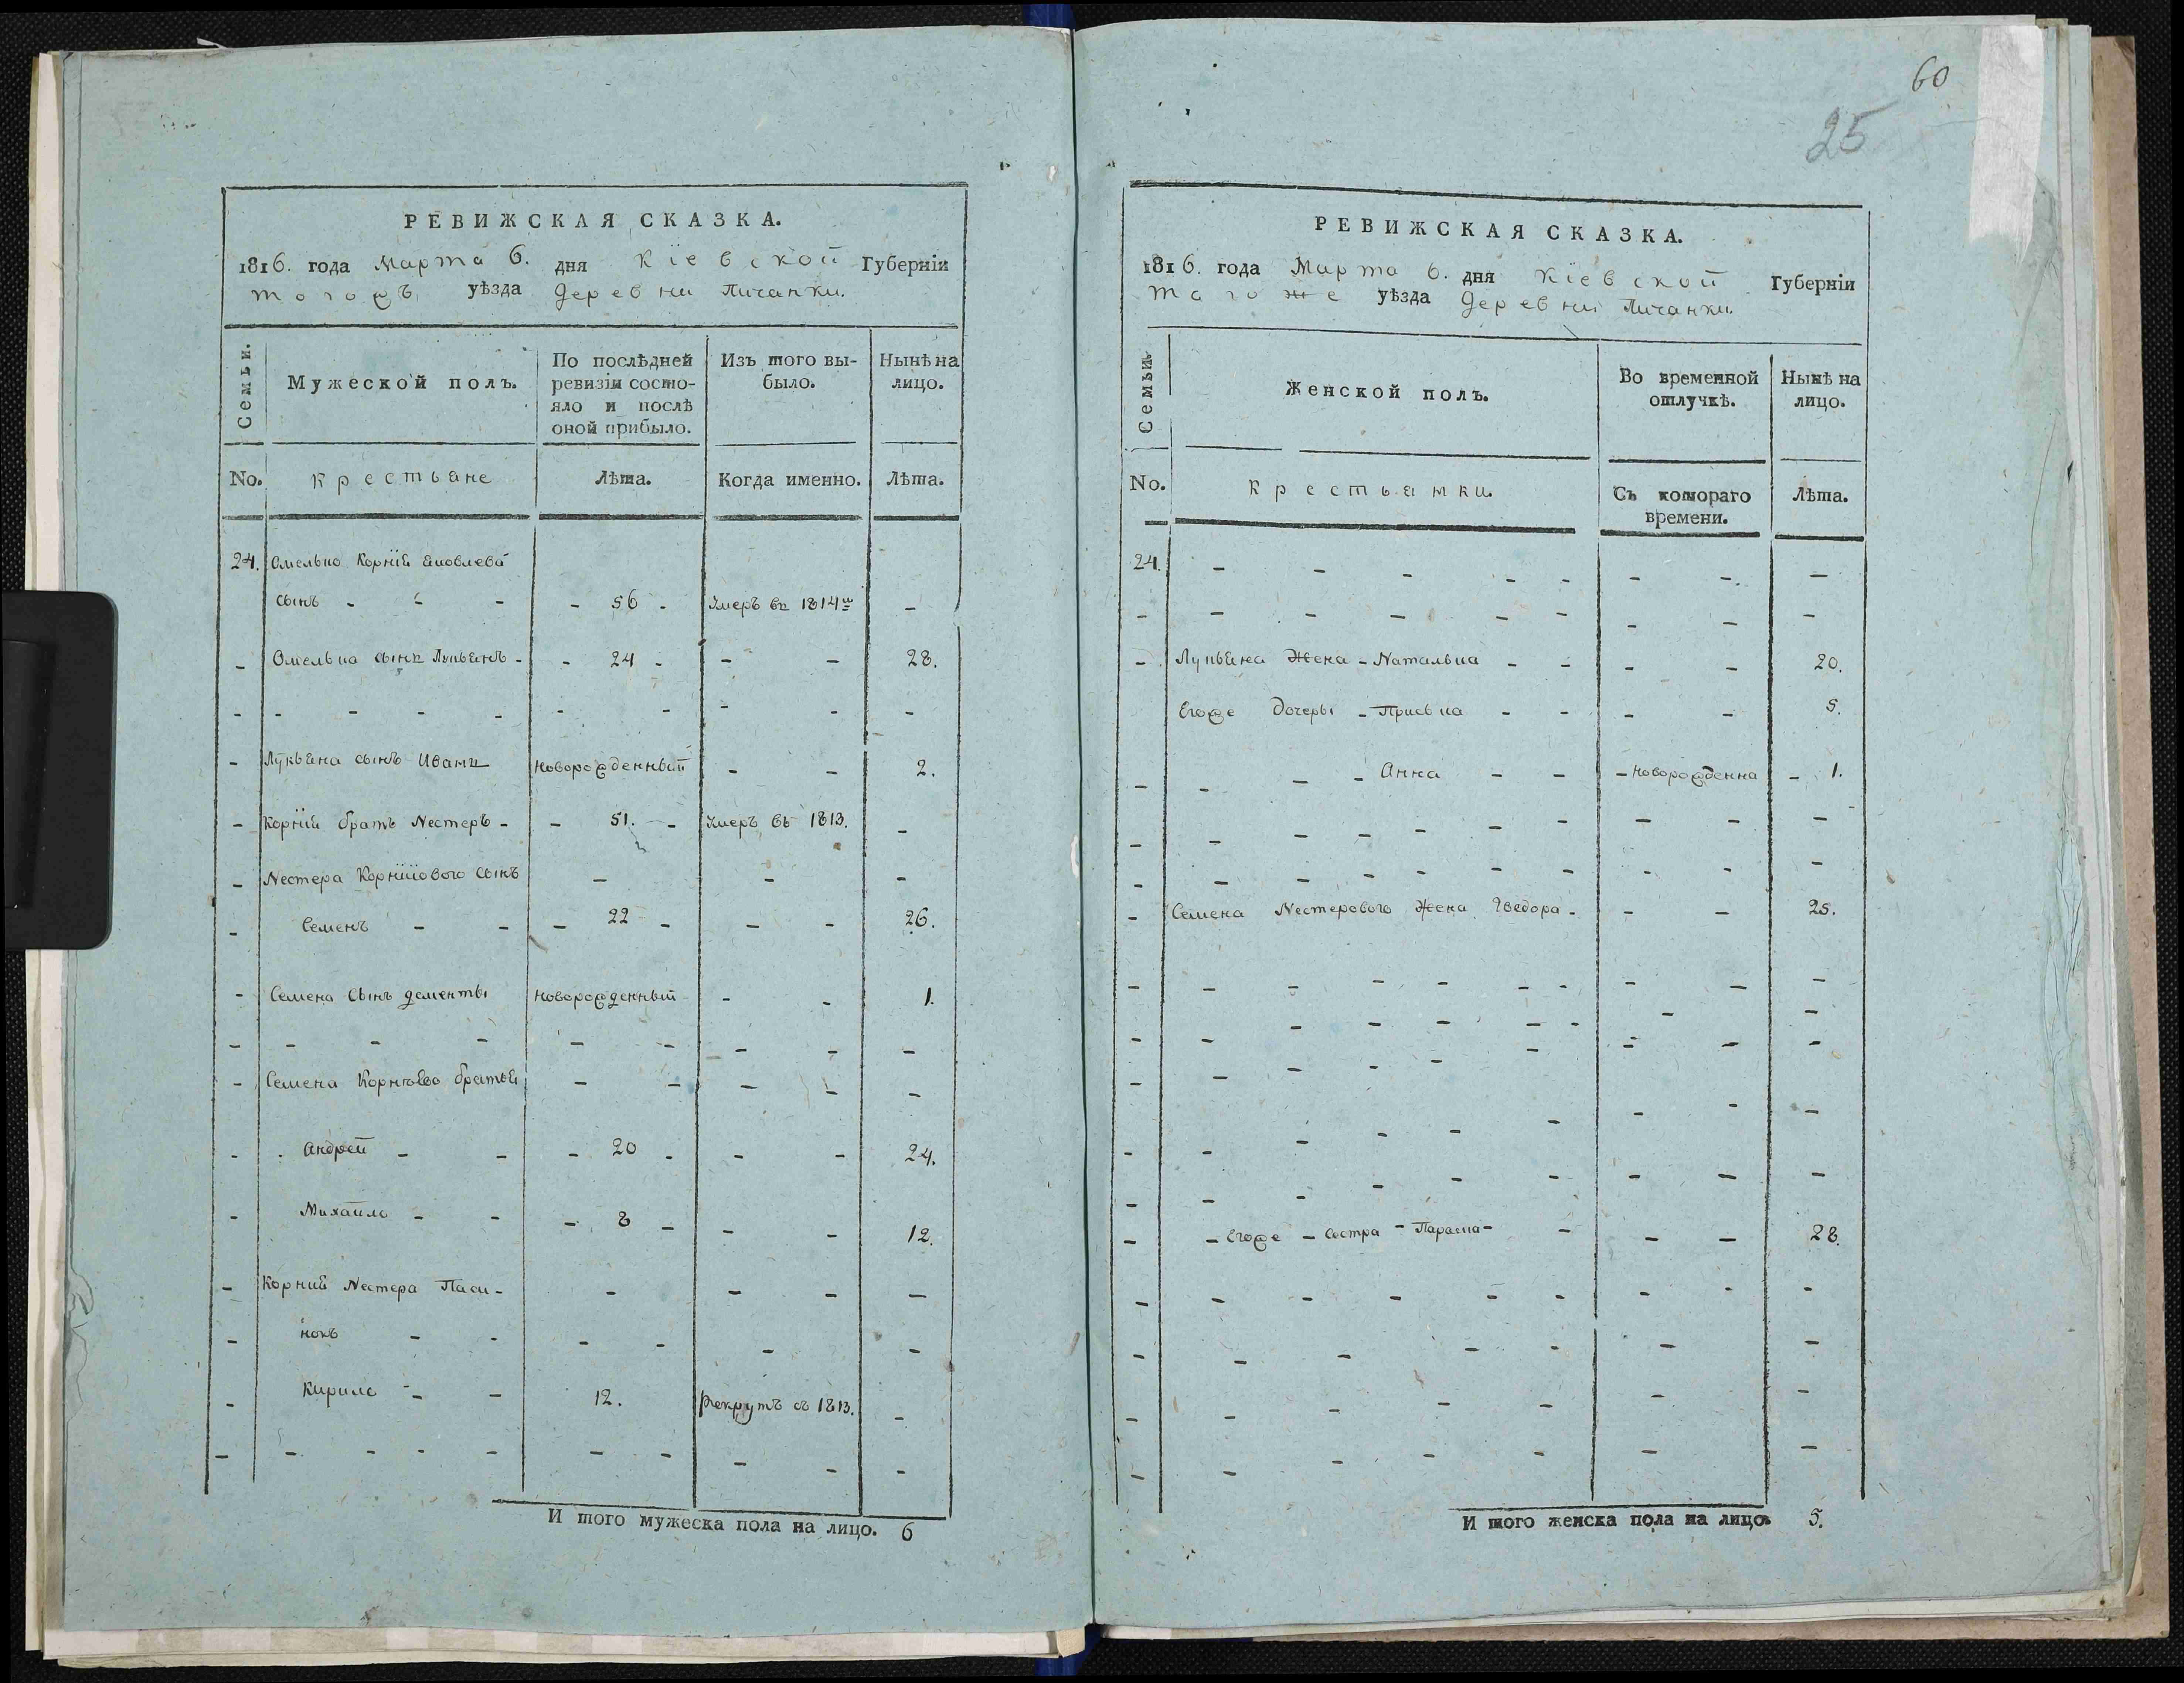 60
25
РЕВИЖСКАЯ СКАЗКА.
1816. года Марта 6. дня Кіевской Губерніи
тогожъ уѣзда деревни Личанки.
Семьи.
Мужеской полъ.
По послѣдней ревизіи состояло и послѣ оной прибыло.
Изъ того выбыло.
Нынѣ на лицо.
No. Крестьяне Лѣта. Когда именно. Лѣта.
24. Омелько Корній Яковлева
сынъ - - - - 56 - Умеръ въ 1814м -
- Омелька сынъ Лукьянъ - - 24 - - - 28.
- - - - - - - - - -
- Лукьяна сынъ Иванъ Новорожденный - - 2.
- Корнія братъ Нестеръ - - 51. - Умеръ въ 1813. -
- Нестера Корніиового сынъ - - -
- Семенъ - - - 22 - - - 26.
- Семена сынъ дементы Новорожденный - - 1.
- - - - - - - - -
- Семена братья - - - - -
- Андрей - - - 20 - - - 24.
- Михайло - - - 8 - - - 12.
- Корнія Нестера Паси- - - - -
- нокъ - - - - - -
- Кирило - - 12. Рекрутъ въ 1813. -
- - - - - - - - - -
И того мужеска пола на лицо. 6
РЕВИЖСКАЯ СКАЗКА.
1816. года Марта 6. дня Кіевской Губерніи
того же уѣзда деревни Личанки.
Семьи.
Женской полъ.
Во временной отлучкѣ.
Нынѣ на лицо.
No. Крестьянки. Съ котораго времени. Лѣта.
24. - - - - - - - -
- - - - - - - - -
- Лукьяна Жена - Наталька - - - - 20.
Егоже Дочеры - Приська - - - - 5.
- - - Анна - - - Новорожденна - 1.
- - - - - - - - - -
- - - - - - - - - -
- Семена Нестерового Жена Гведора - - - 25.
- - - - - - - - -
- - - - - - - - -
- - - - - - - -
- - - - - - - - -
- - - - - - - - -
- - Егоже - Сестра - Параска - - - - 28.
- - - - - - - - -
- - - - - - -
- - - - - - -
- - - - - - -
И того женска пола на лицо 5.